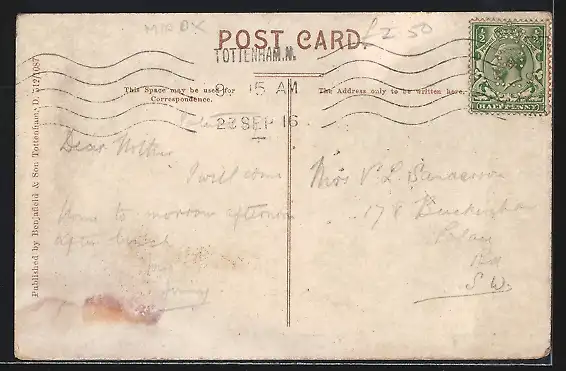 MIDDX
£2.50
POST CARD.
TOTTENHAM.N.
9 15 AM
23 SEP 16
This Space may be used for
Correspondence.
The Address only to be written here.
HALFPENNY
Published by Benjafield & Son Tottenham, D.
Dear Mother
I will come
Home to morrow afternoon
after
Miss V L Sanderson
178 Buckingham
Palace
Rd
S.W.